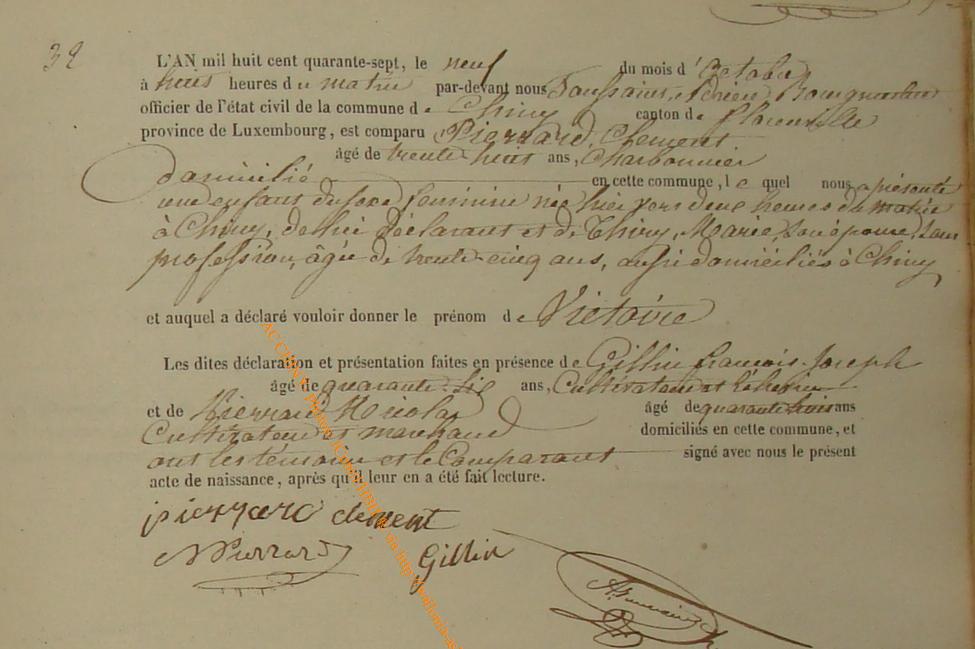 32
L'AN mil huit cent quarante-sept, le neuf du mois d' Octobre
à huit heures du matin par-devant nous Toussaint, Adrien
officier de l'état civil de la commune de Chiny canton de Florenville
province de Luxembourg, est comparu Pierrard, Clement
âgé de trente huit ans, Charbonnier
domicilié en cette commune, le quel nous a présenté
une enfant du sexe feminin née hier vers deux heures du matin
à Chiny, de lui déclarant et de Thiry, Marie, son épouse, sans
profession, âgée de trente-cinq ans, aussi domiciliés à Chiny
et auquel a déclaré vouloir donner le prénom de Victoire
Les dites déclaration et présentation faites en présence de Gillin françois-Joseph
âgé de quarante-six ans, Cultivateur et
et de Pierrard Nicolas âgé de quarante trois ans
Cultivateur et marchand domiciliés en cette commune, et
ont les témoins et le Comparant signé avec nous le présent
acte de naissance, après qu'il leur en a été fait lecture.
pierrard clement
N Pierrard Gillin